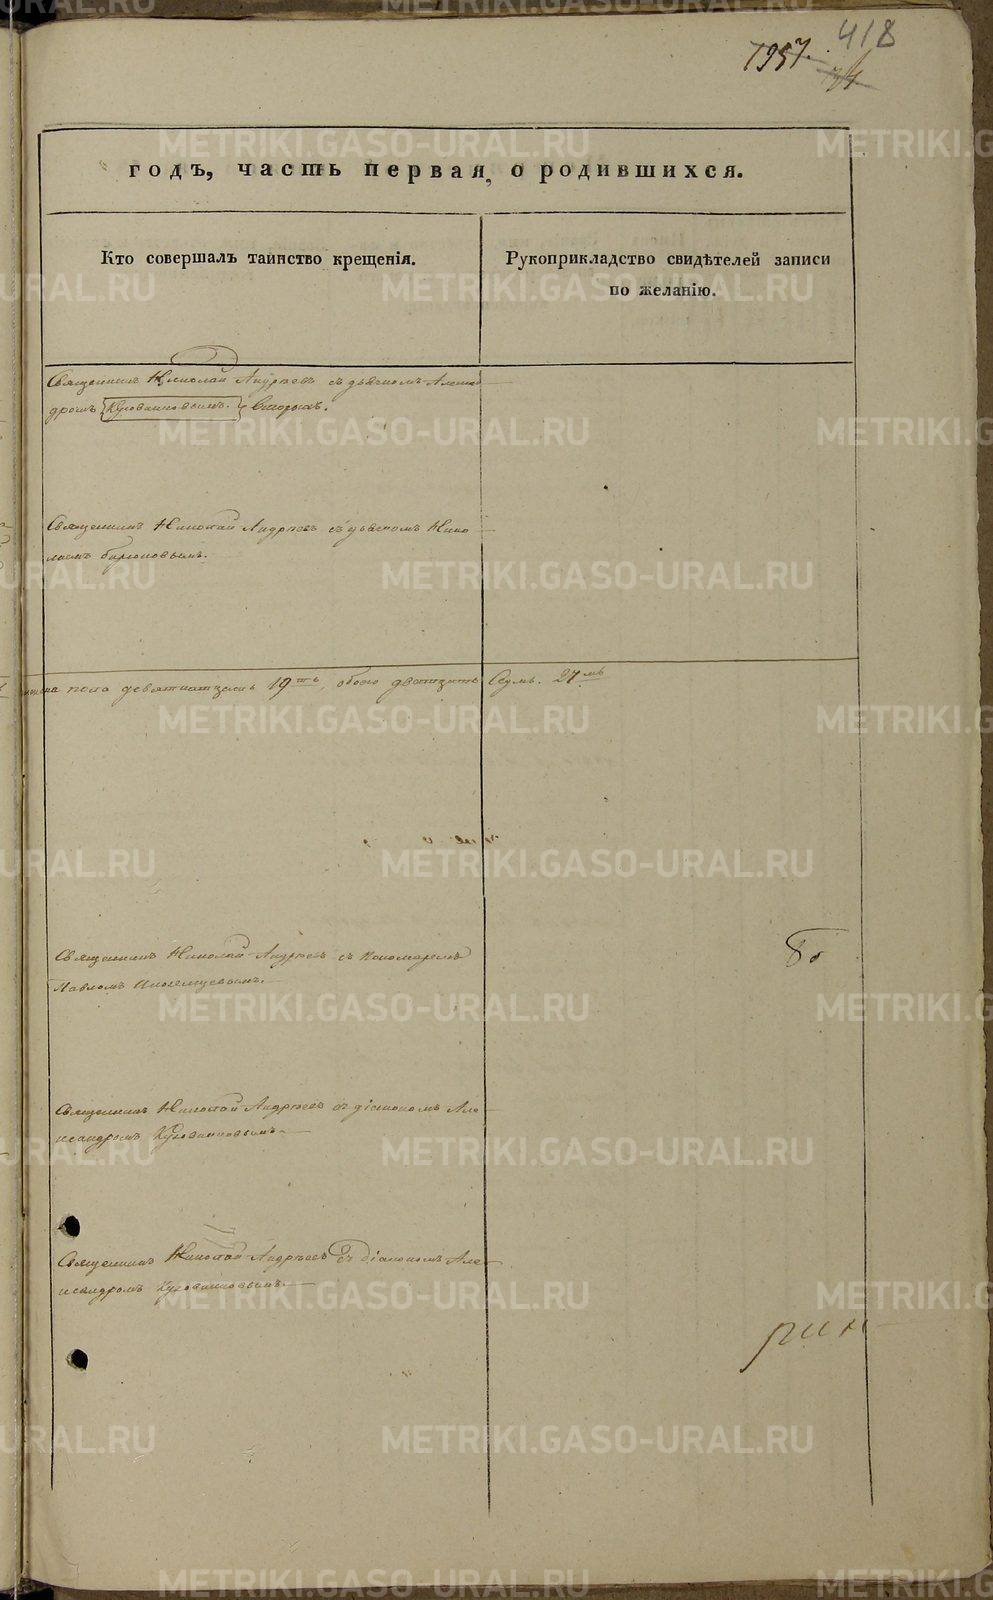 418
1957.
годъ, часть первая, о родившихся.
Кто совершалъ таинство крещенія.
Рукоприкладство свидѣтелей записи
по желанію.
Священникъ Николай Андреевъ съ дьякономъ Алексан
дромъ Кусованниковымъ.
Священникъ Николай Андреевъ съ дьякономъ Нико
лаемъ
пола девятнатцать 19ть, обоего дватцать Седмь. 27мь
Священникъ Николай Андреевъ съ Пономаремъ
Павломъ Иноземцевымъ.
Священникъ Николай Андреевъ съ діакономъ Але
ксандромъ
Священникъ Николай Андреевъ съ діакономъ Але
ксандромъ
METRIKI.GASO-URAL.RU